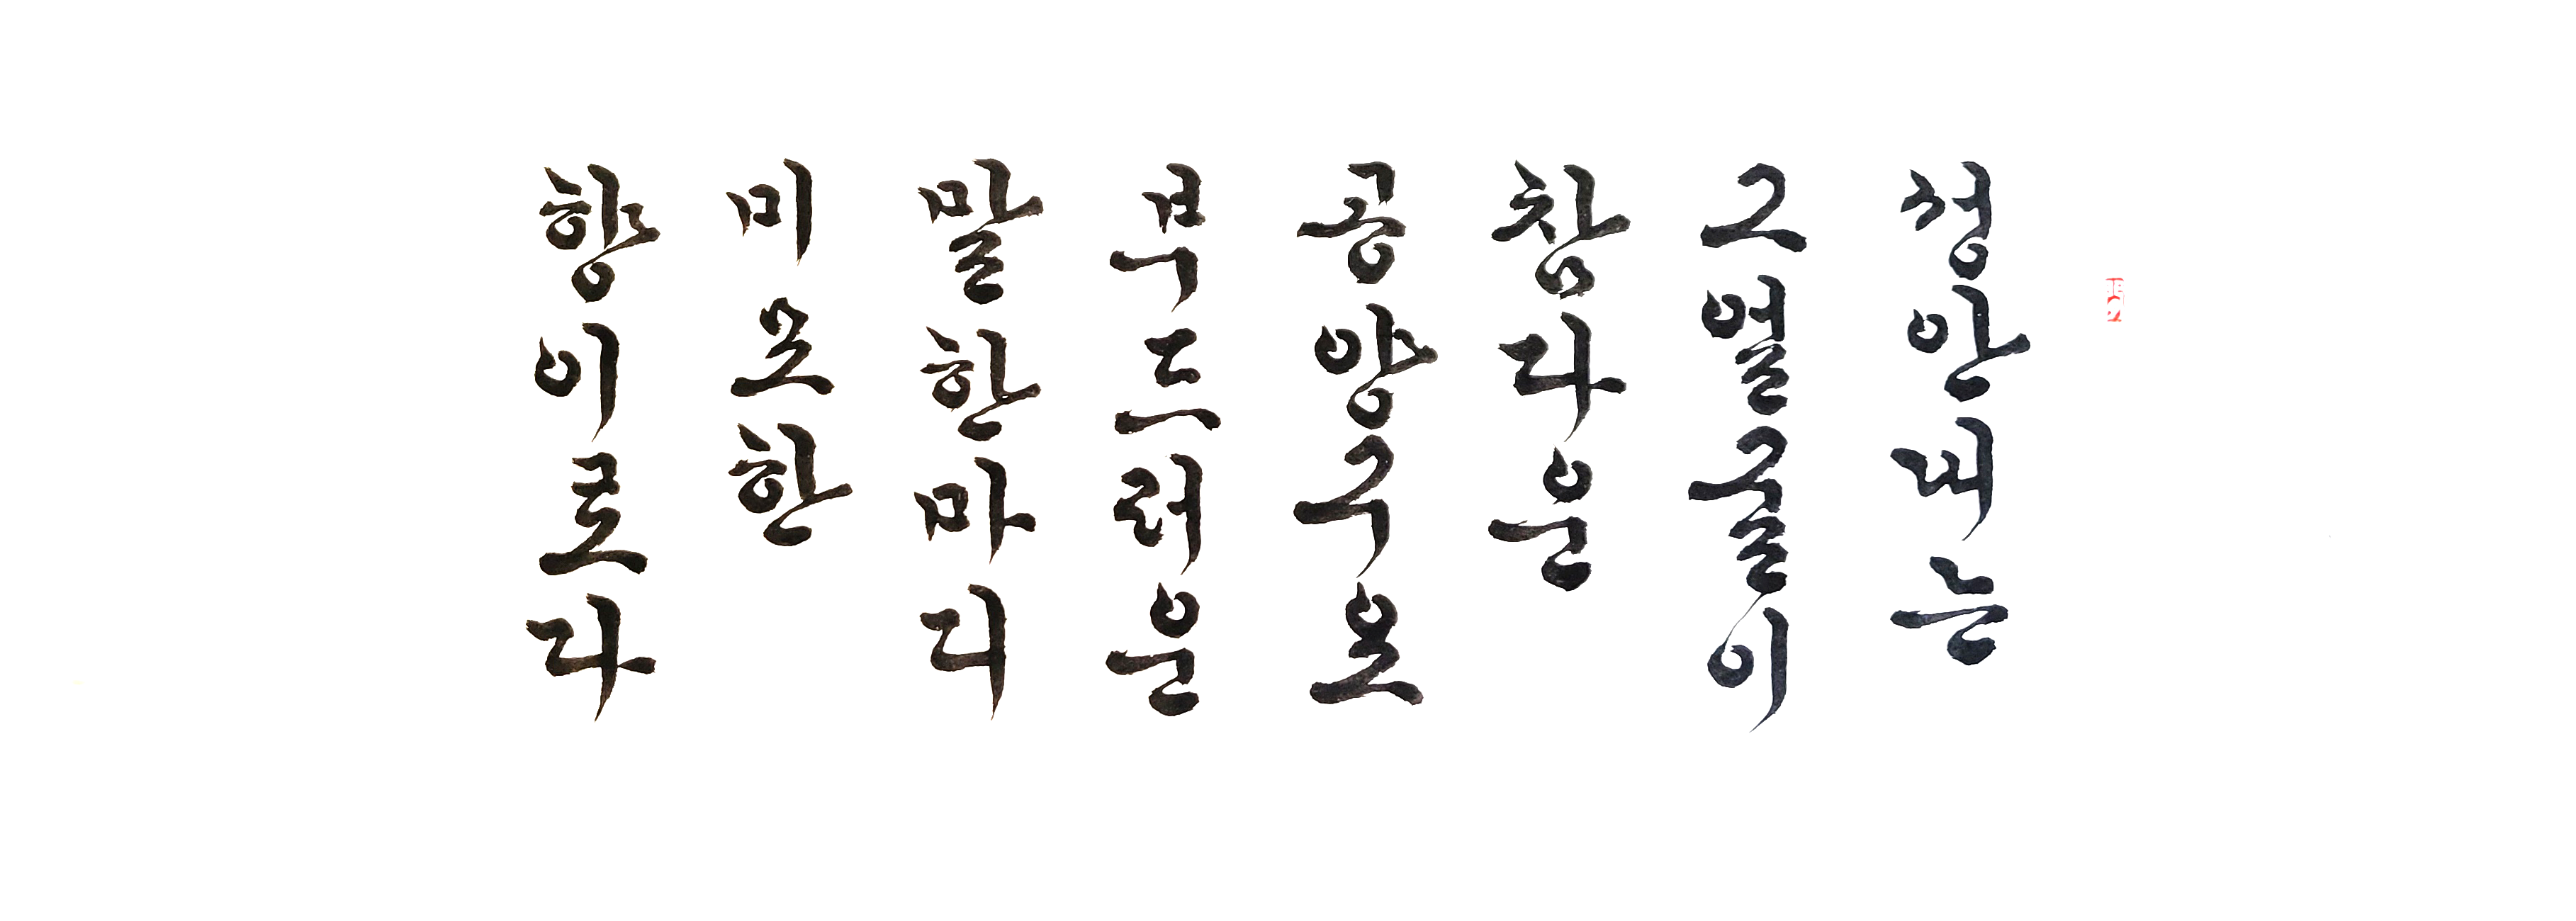 성안내는
그얼굴이
참다운
공양구요
부드러운
말한마디
미묘한
향이로다